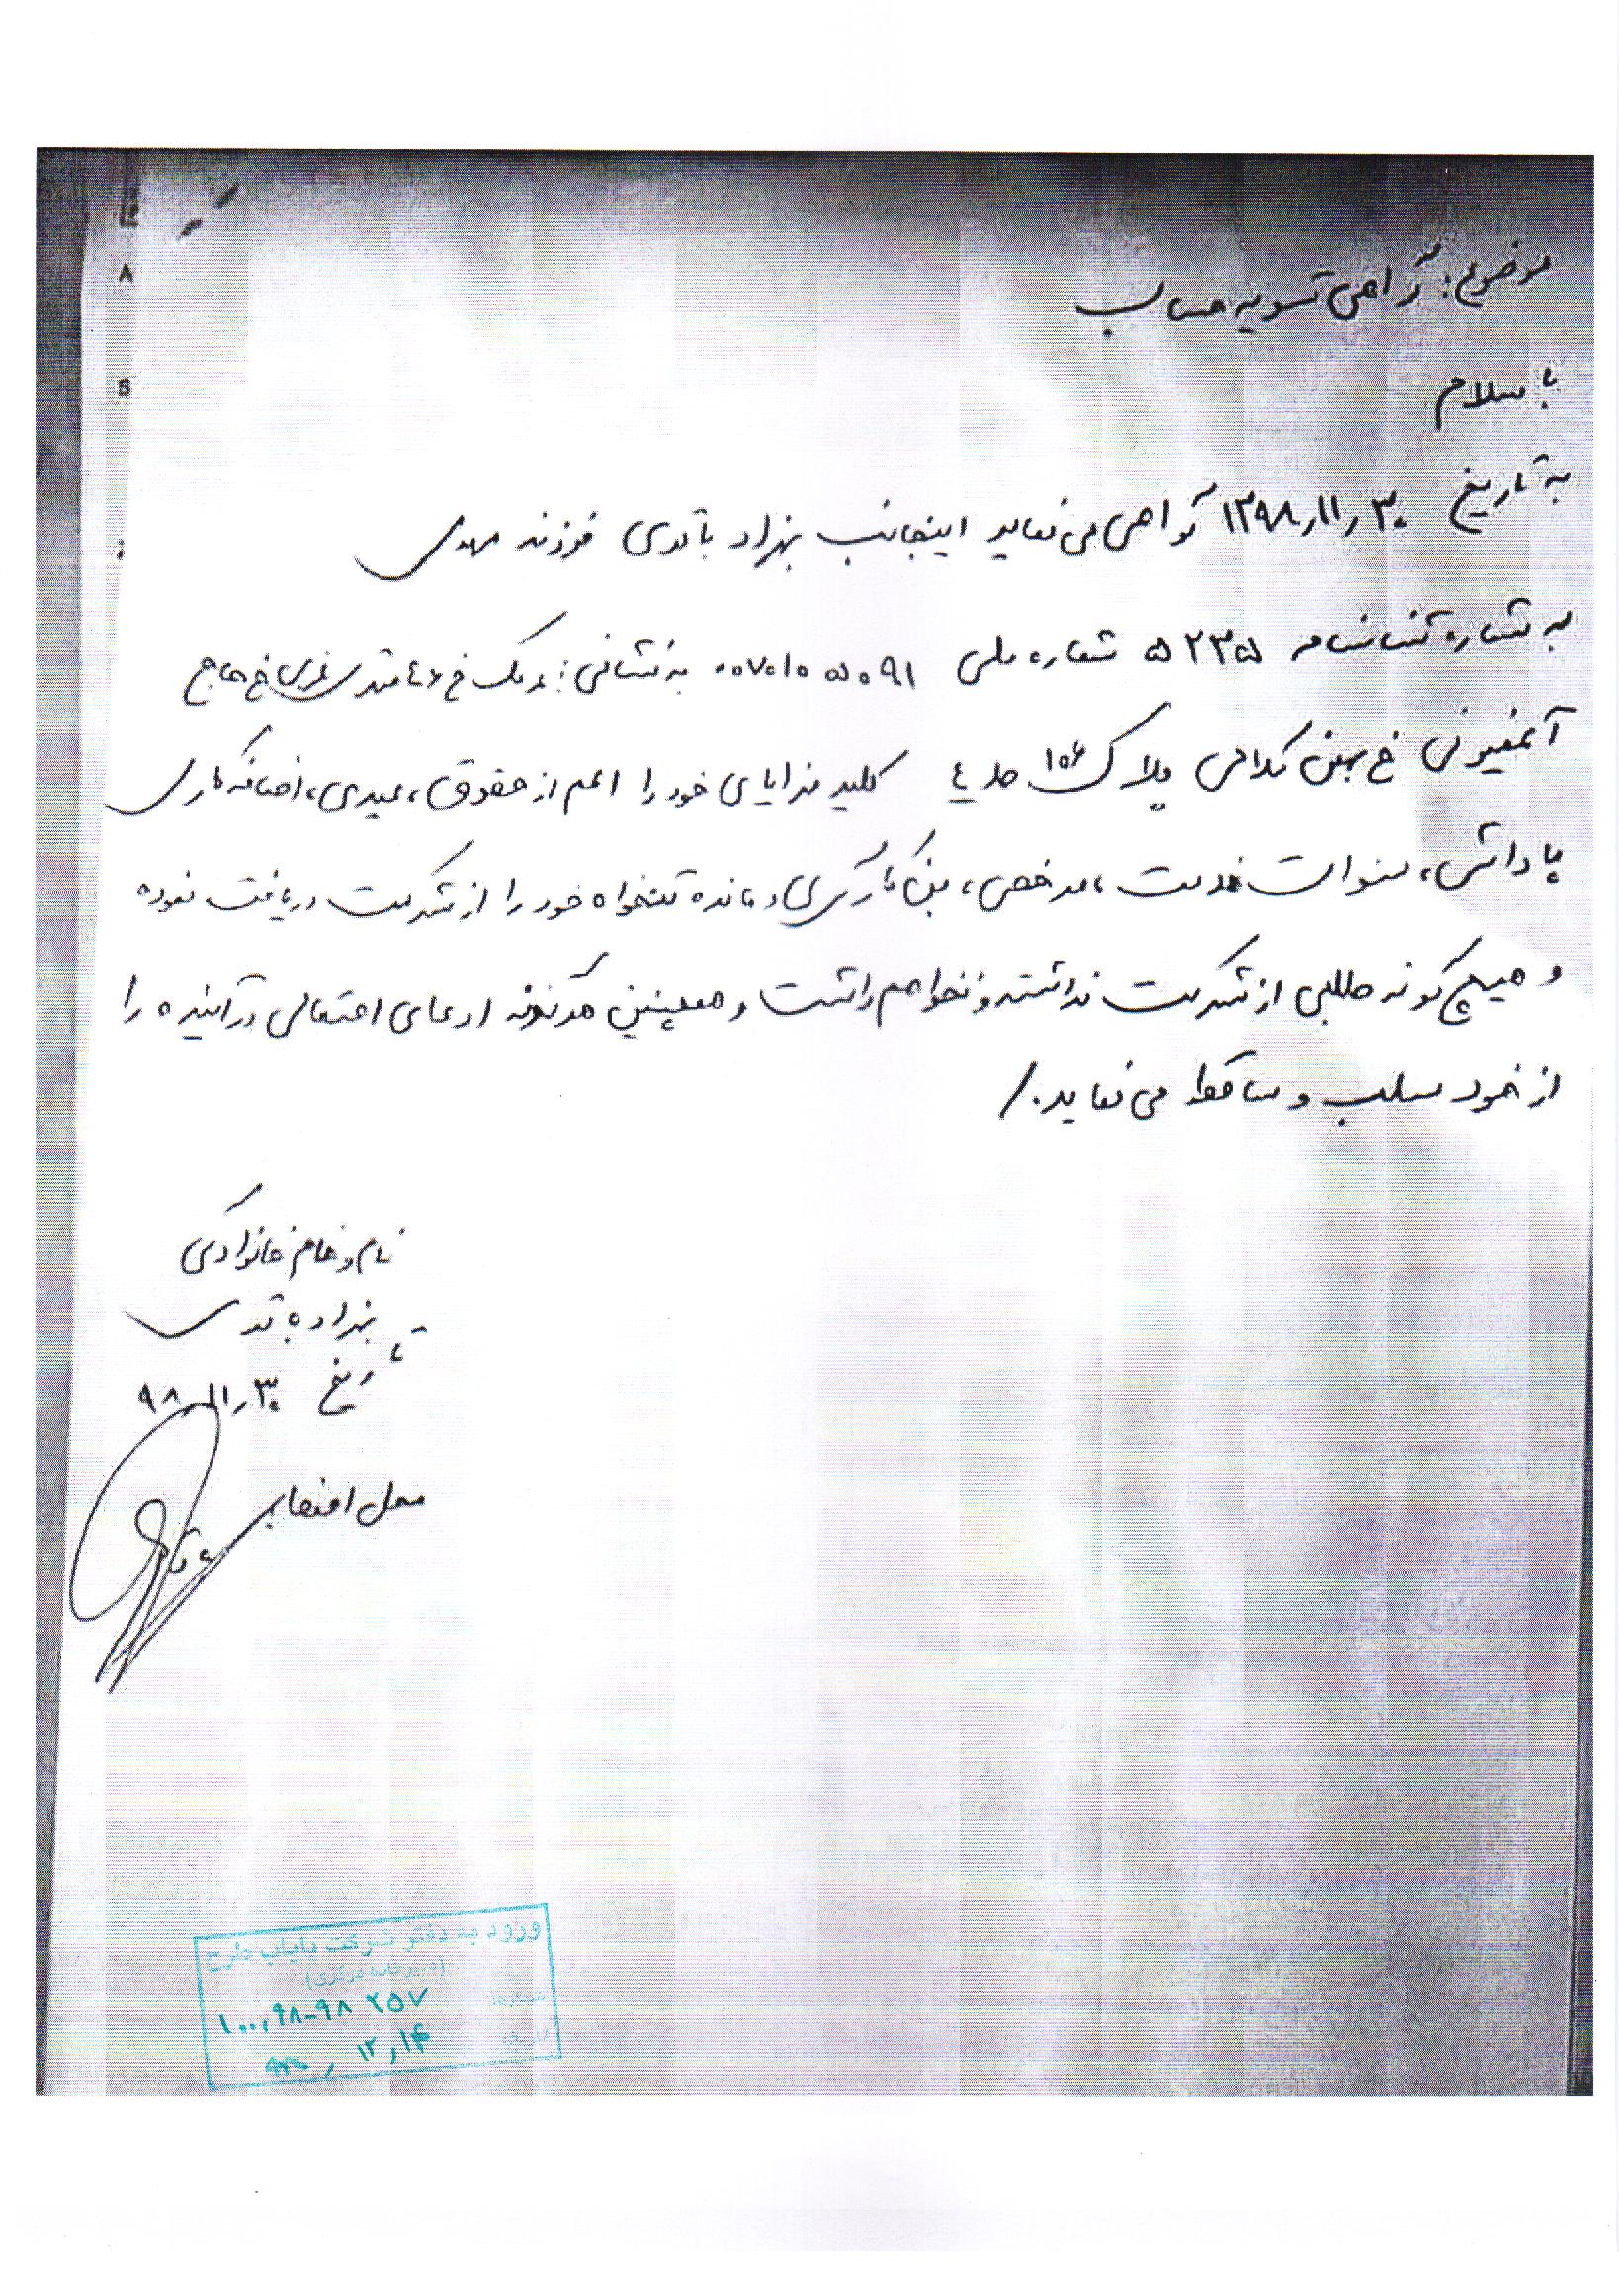 موضوع: گواهی تسویه حساب
با سلام
به تاریخ ۱۳۹۸٫۱۱٫۳۰ گواهی می نماید اینجانب بهزاد باقدی فرزند مهدی
به شماره شناسنامه ۵۲۳۵ شماره ملی ۰۰۷۰۱۰۵۰۹۱ به نشانی:
خ بهمن پلاک ۱۵۶ کلیه مزایای خود را اعم از حقوق، عیدی، اضافه کاری
پاداش، سنوات خدمت، مرخصی، بن کارگری و مانده تنخواه خود را از شرکت دریافت نموده
و هیچ گونه طلبی از شرکت نداشته و نخواهم داشت و همچنین هرگونه ادعای احتمالی در آینده را
از خود سلب و ساقط می نماید./
نام و نام خانوادگی
بهزاد باقدی
تاریخ ۹۸٫۱۱٫۳۰
محل امضاء
ورود به دفتر شرکت پایاب طرح
(دبیرخانه مرکزی)
شماره: ۱۰۰٫۹۸-۹۸ ۲۵۷
۱۲٫۱۴
A
B